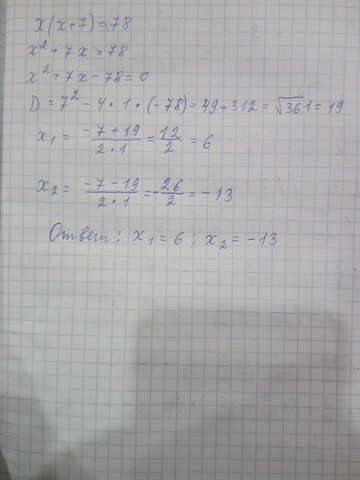 x(x+7)=78
x²+7x=78
x²+7x-78=0
D=7²-4·1·(-78)=49+312=√361=19
x₁= (-7+19)/(2·1) = 12/2 = 6
x₂= (-7-19)/(2·1) =- 26/2 = -13
Ответ: x₁=6; x₂=-13